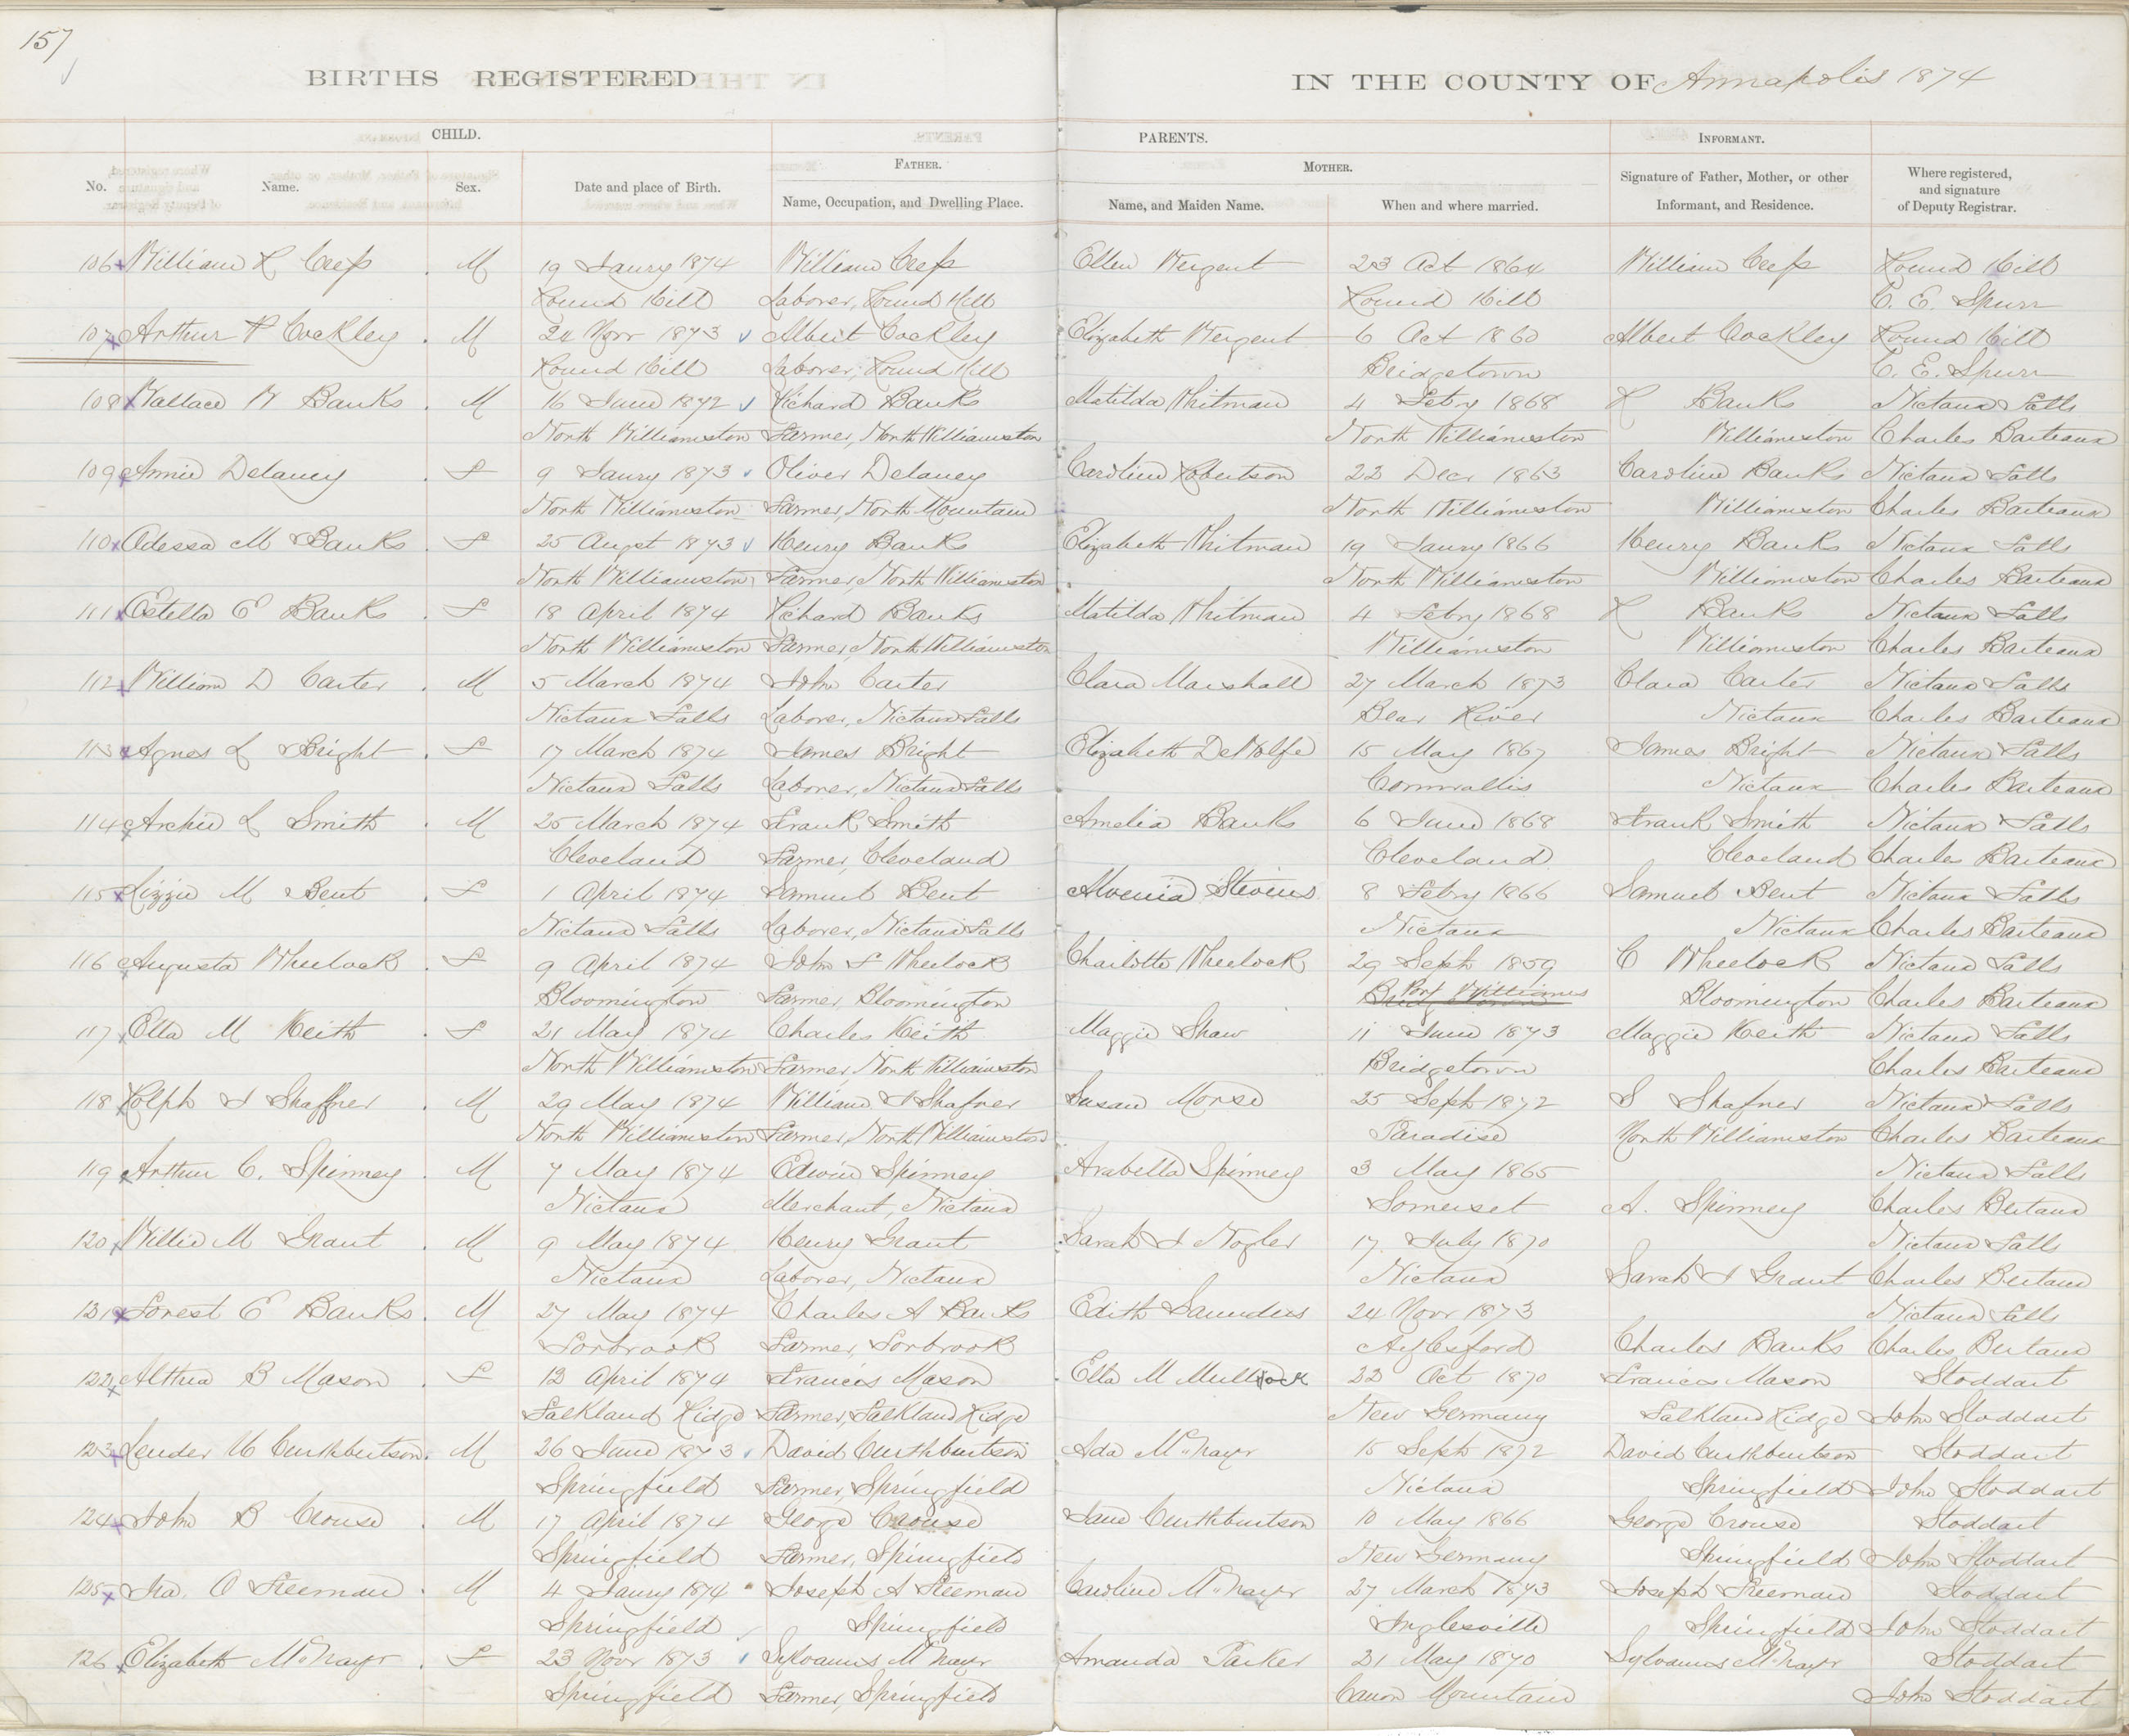 157
BIRTHS REGISTERED IN THE COUNTY OF Annapolis 1874
CHILD. PARENTS. INFORMANT.
FATHER. MOTHER.
No. Name. Sex. Date and place of Birth. Name, Occupation, and Dwelling Place. Name, and Maiden Name. When and where married. Signature of Father, Mother, or other Informant, and Residence. Where registered, and signature of Deputy Registrar.
106 William R M 19 Jaury 1874 William Ellen 23 Oct 1864 William Round Hill
Round Hill Laborer, Round Hill Round Hill C. E. Spurr
107 Arthur P Cockley M 24 Novr 1873 Albert Cockley Elizabeth 6 Oct 1860 Albert Cockley Round Hill
Round Hill Laborer, Round Hill Bridgetown C. E. Spurr
108 Wallace W Banks M 16 June 1872 Richard Banks Matilda Whitman 4 Febry 1868 R Banks Nictaux Falls
North Williamston Farmer, North Williamston North Williamston Williamston Charles Barteaux
109 Annie Delaney F 9 Jaury 1873 Oliver Delaney Caroline Robertson 22 Decr 1863 Caroline Banks Nictaux Falls
North Williamston Farmer, North Mountain North Williamston Williamston Charles Barteaux
110 Adessa M Banks F 25 Augst 1873 Henry Banks Elizabeth Whitman 19 Jaury 1866 Henry Banks Nictaux Falls
North Williamston Farmer, North Williamston North Williamston Williamston Charles Barteaux
111 Estella E Banks F 18 April 1874 Richard Banks Matilda Whitman 4 Febry 1868 R Banks Nictaux Falls
North Williamston Farmer, North Williamston Williamston Williamston Charles Barteaux
112 William D Carter M 5 March 1874 John Carter Clara Marshall 27 March 1873 Clara Carter Nictaux Falls
Nictaux Falls Laborer, Nictaux Falls Bear River Nictaux Charles Barteaux
113 Agnes L Bright F 17 March 1874 James Bright Elizabeth DeWolfe 15 May 1867 James Bright Nictaux Falls
Nictaux Falls Laborer, Nictaux Falls Cornwallis Nictaux Charles Barteaux
114 Archie L Smith M 25 March 1874 Frank Smith Amelia Banks 6 June 1868 Frank Smith Nictaux Falls
Cleveland Farmer, Cleveland Cleveland Cleveland Charles Barteaux
115 Lizzie M Bent F 1 April 1874 Samuel Bent Alvenia Stevens 8 Febry 1866 Samuel Bent Nictaux Falls
Nictaux Falls Laborer, Nictaux Falls Nictaux Nictaux Charles Barteaux
116 Augusta Wheelock F 9 April 1874 John F Wheelock Charlotte Wheelock 29 Septr 1859 C Wheelock Nictaux Falls
Bloomington Farmer, Bloomington Port Williams Bloomington Charles Barteaux
117 Etta M Keith F 21 May 1874 Charles Keith Maggie Shaw 11 June 1873 Maggie Keith Nictaux Falls
North Williamston Farmer, North Williamston Bridgetown Charles Barteaux
118 Rolph I Shaffner M 29 May 1874 William I Shafner Susan Morse 25 Septr 1872 S Shafner Nictaux Falls
North Williamston Farmer, North Williamston Paradise North Williamston Charles Barteaux
119 Arthur C. Spinney M 7 May 1874 Edwin Spinney Arabella Spinney 3 May 1865 Nictaux Falls
Nictaux Merchant, Nictaux Somerset A. Spinney Charles Bertaux
120 Willie M Grant M 9 May 1874 Henry Grant Sarah I Nogler 17 July 1870 Nictaux Falls
Nictaux Laborer, Nictaux Nictaux Sarah I Grant Charles Bertaux
121 Forest E Banks M 27 May 1874 Charles A Banks Edith Saunders 24 Novr 1873 Nictaux Falls
Torbrook Farmer, Torbrook Aylesford Charles Banks Charles Bertaux
122 Althea B Mason F 12 April 1874 Francis Mason Ella M Mullock 22 Oct 1870 Francis Mason Stoddart
Falkland Ridge Farmer, Falkland Ridge New Germany Falkland Ridge John Stoddart
123 Lender U Cuthbertson M 26 June 1873 David Cuthbertson Ada McNayr 15 Septr 1872 David Cuthbertson Stoddart
Springfield Farmer, Springfield Nictaux Springfield John Stoddart
124 John B Crouse M 17 April 1874 George Crouse Jane Cuthbertson 10 May 1866 George Crouse Stoddart
Springfield Farmer, Springfield New Germany Springfield John Stoddart
125 Ira. O Freeman M 4 Jaury 1874 Joseph A Freeman Caroline McNayr 27 March 1873 Joseph Freeman Stoddart
Springfield Springfield Inglesville Springfield John Stoddart
126 Elizabeth McNayr F 23 Novr 1873 Sylvanus McNayr Amanda Parker 21 May 1870 Sylvanus McNayr Stoddart
Springfield Farmer, Springfield Mountain John Stoddart